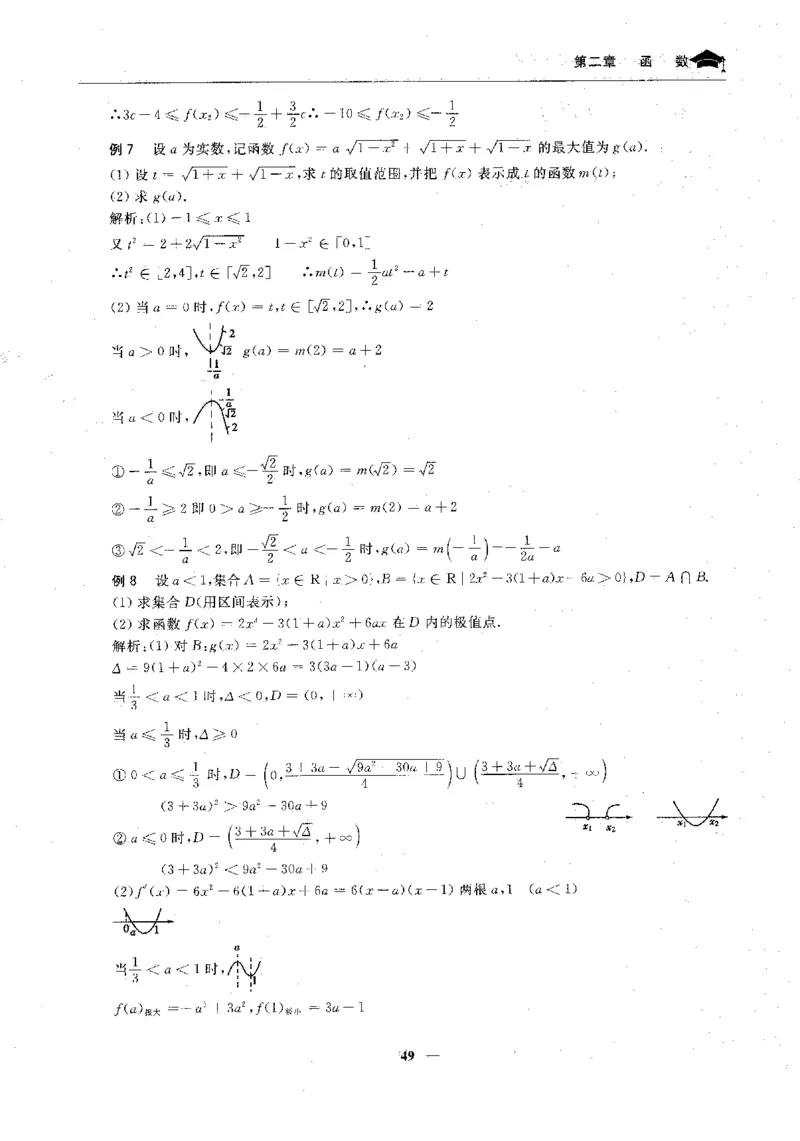 第二章 函 数
∴3c-4≤f(x₂)≤-1/2+3/2c∴-10≤f(x₂)≤-1/2
例7 设a为实数,记函数f(x)=a√(1-x²)+√(1+x)+√(1-x)的最大值为g(a).
(1)设t=√(1+x)+√(1-x),求t的取值范围,并把f(x)表示成t的函数m(t);
(2)求g(a).
解析:(1)-1≤x≤1
又t²=2+2√(1-x²) 1-x²∈[0,1]
∴t²∈[2,4],t∈[√2,2] ∴m(t)=1/2at²-a+t
(2)当a=0时,f(x)=t,t∈[√2,2],∴g(a)=2
当a>0时, 2 √2 -1/a g(a)=m(2)=a+2
当a<0时, -1/a √2 2
①-1/a≤√2,即a≤-√2/2时,g(a)=m(√2)=√2
②-1/a≥2即0>a≥-1/2时,g(a)=m(2)=a+2
③√2<-1/a<2,即-√2/2<a<-1/2时,g(a)=m(-1/a)=-1/2a-a
例8 设a<1,集合A={x∈R|x>0},B={x∈R|2x²-3(1+a)x+6a>0},D=A∩B.
(1)求集合D(用区间表示);
(2)求函数f(x)=2x³-3(1+a)x²+6ax在D内的极值点.
解析:(1)对B:g(x)=2x²-3(1+a)x+6a
Δ=9(1+a)²-4×2×6a=3(3a-1)(a-3)
当1/3<a<1时,Δ<0,D=(0,+∞)
当a≤1/3时,Δ≥0
①0<a≤1/3时,D=(0,(3+3a-√(9a²-30a+9))/4)∪((3+3a+√Δ)/4,+∞)
(3+3a)²>9a²-30a+9
x₁ x₂ x₁ x₂
②a≤0时,D=((3+3a+√Δ)/4,+∞)
(3+3a)²<9a²-30a+9
(2)f′(x)=6x²-6(1+a)x+6a=6(x-a)(x-1)两根a,1 (a<1)
0 a 1
当1/3<a<1时, a 1
f(a)极大=-a³+3a²,f(1)极小=3a-1
49 —